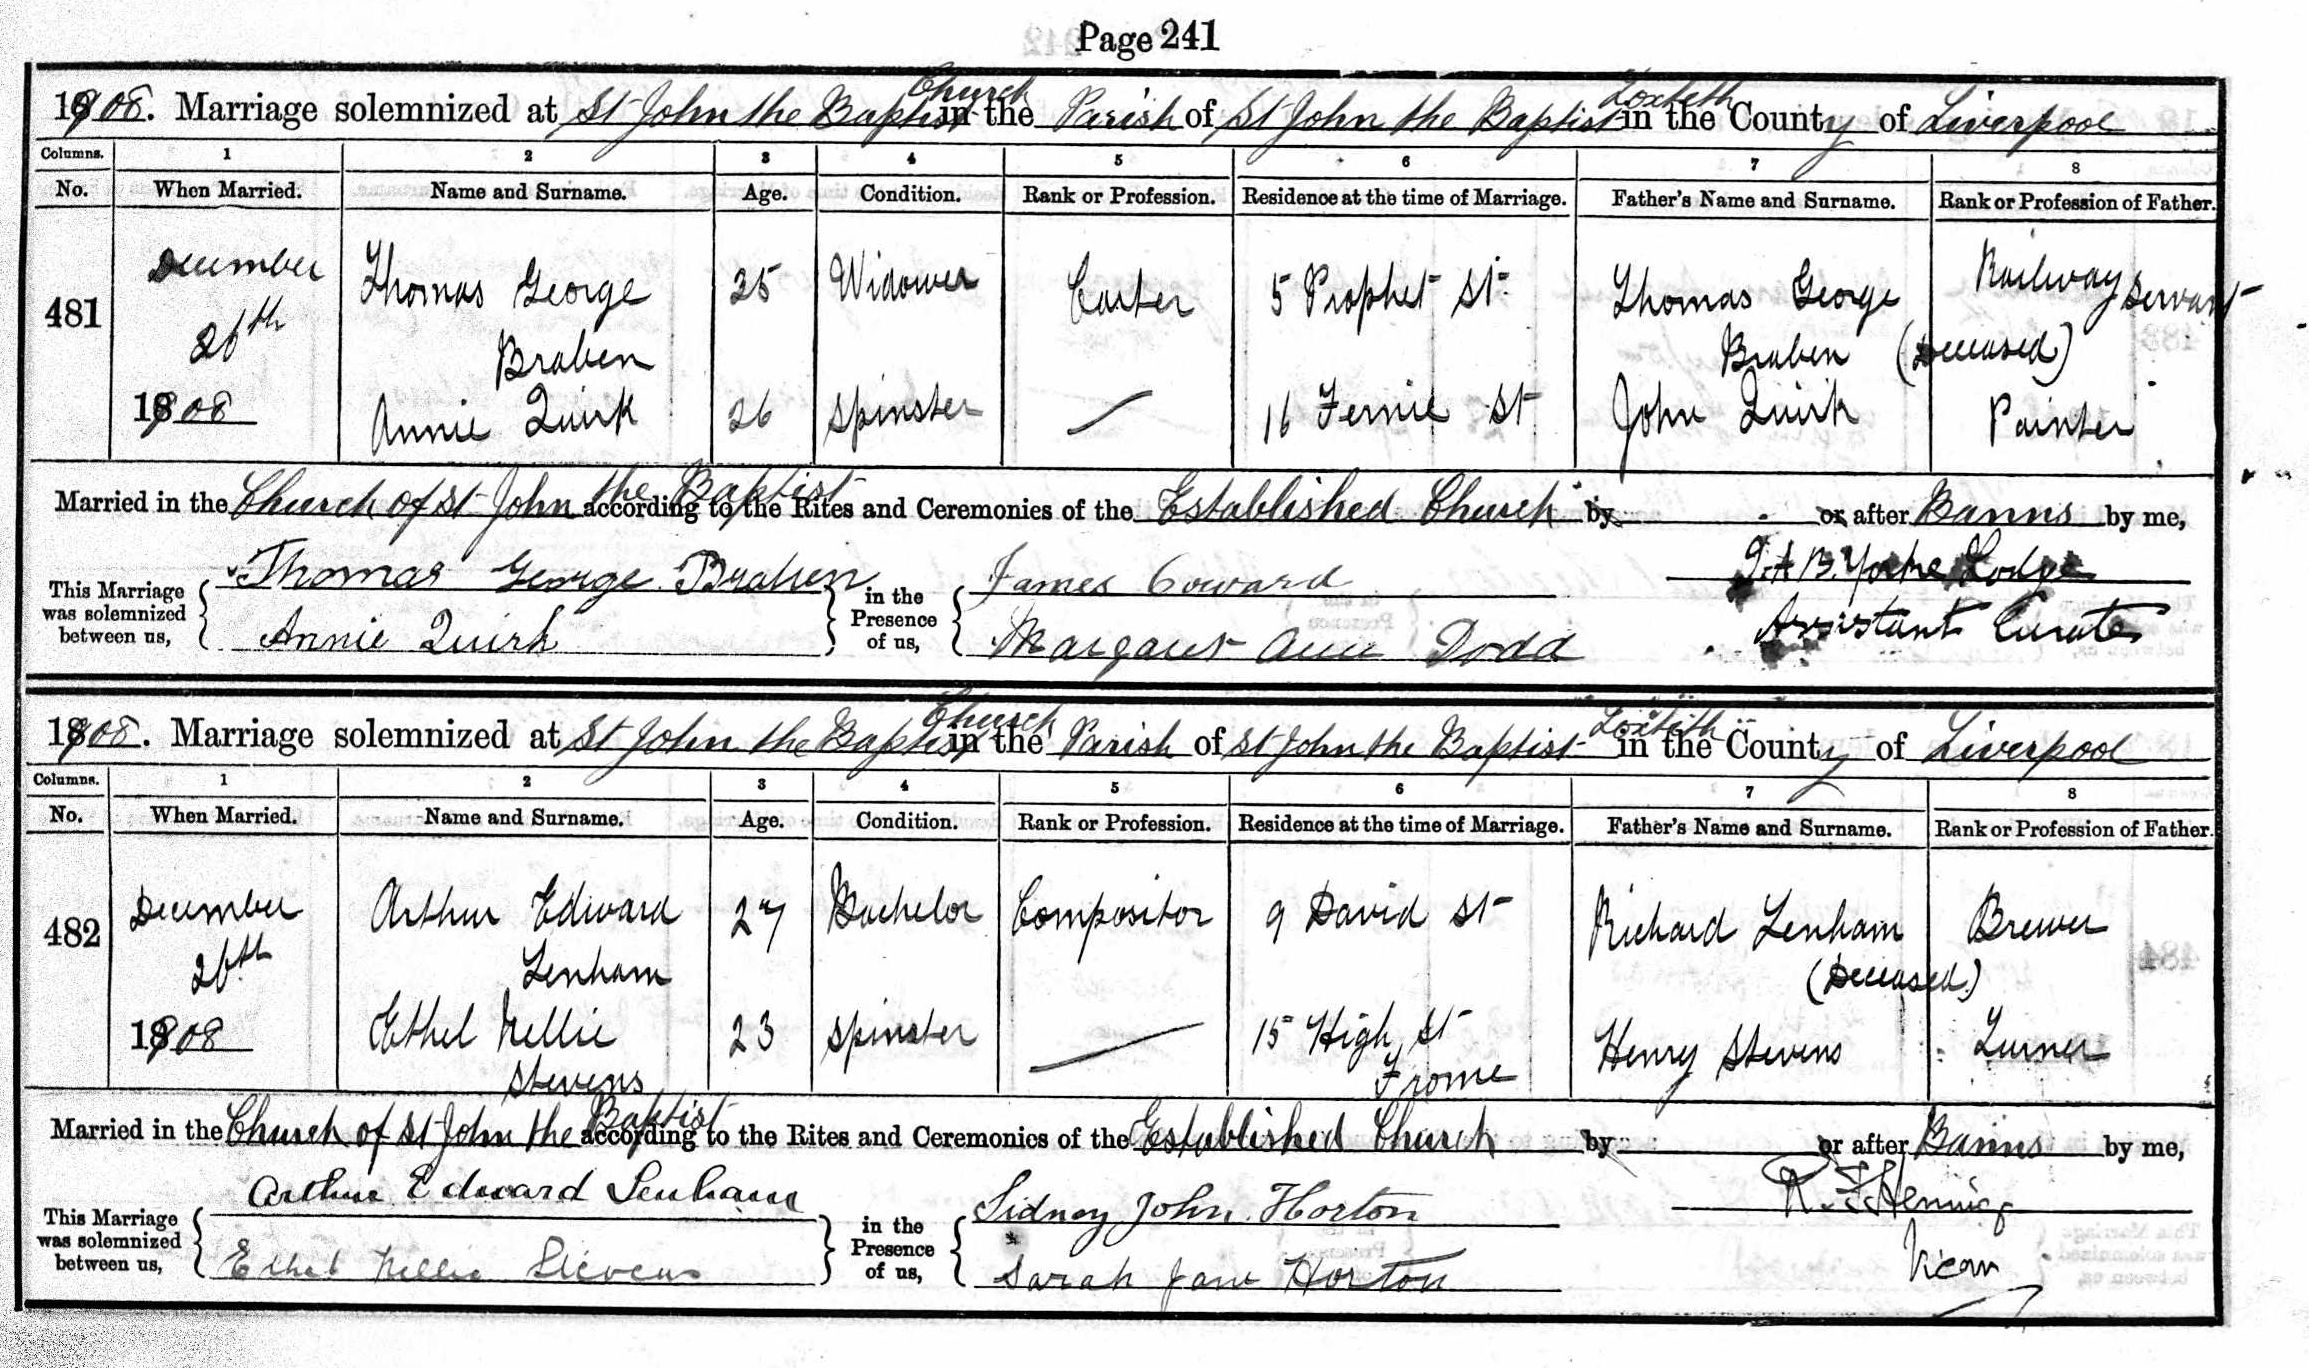 Page 241
1908. Marriage solemnized at St John the Baptist Church in the Parish of St John the Baptist Toxteth in the County of Liverpool
Columns. 1 2 3 4 5 6 7 8
No. When Married. Name and Surname. Age. Condition. Rank or Profession. Residence at the time of Marriage. Father's Name and Surname. Rank or Profession of Father.
481 December 26th 1908
Thomas George Braben 25 Widower Carter 5 Prophet St Thomas George Braben (Deceased) Railway Servant
Annie Quirk 26 Spinster — 16 Fernie St John Quirk Painter
Married in the Church of St John the Baptist according to the Rites and Ceremonies of the Established Church by or after Banns by me,
This Marriage was solemnized between us, Thomas George Braben Annie Quirk in the Presence of us, James Coward Margaret Ann Dodd Yorke Lodge Assistant Curate
1908. Marriage solemnized at St John the Baptist Church in the Parish of St John the Baptist Toxteth in the County of Liverpool
Columns. 1 2 3 4 5 6 7 8
No. When Married. Name and Surname. Age. Condition. Rank or Profession. Residence at the time of Marriage. Father's Name and Surname. Rank or Profession of Father.
482 December 26th 1908
Arthur Edward Lenham 27 Bachelor Compositor 9 David St Richard Lenham (Deceased) Brewer
Ethel Nellie Stevens 23 Spinster — 15 High St Frome Henry Stevens Turner
Married in the Church of St John the Baptist according to the Rites and Ceremonies of the Established Church by or after Banns by me,
This Marriage was solemnized between us, Arthur Edward Lenham Ethel Nellie Stevens in the Presence of us, Sidney John Horton Sarah Jane Horton Vicar